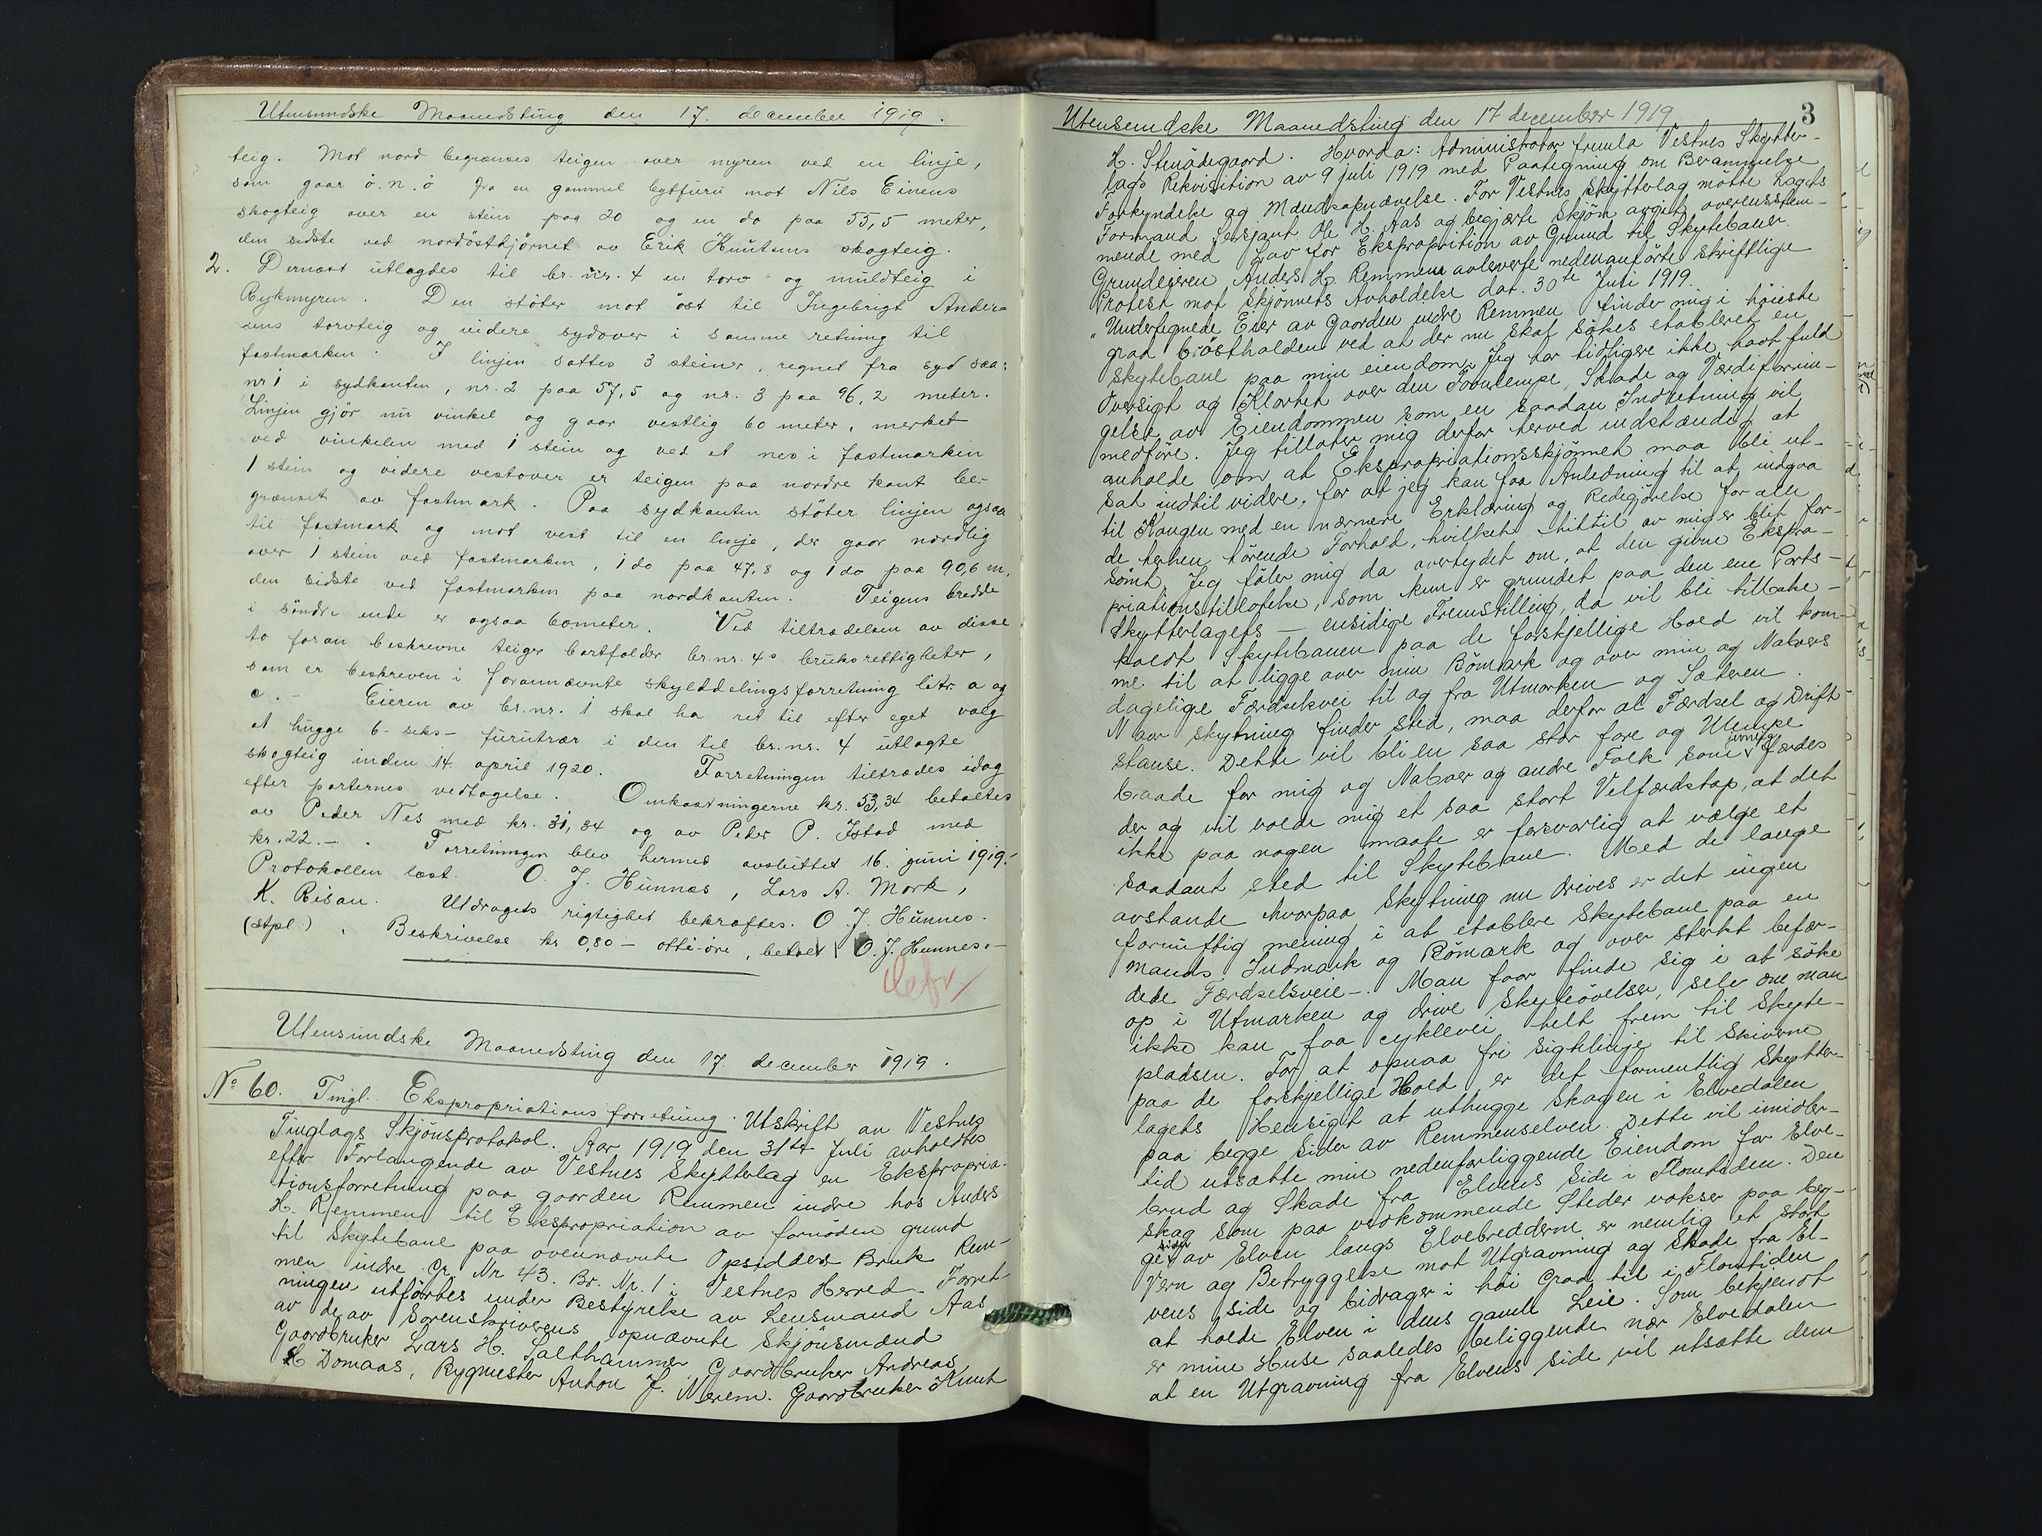 Utensundske Maanedsting den 17. december 1919.
teig. Mot nord begrænses teigen over myren ved en linje,
som gaar ø.n.ø fra en gammel bytfuru mot Nils Einens
skogteig over en stein paa 20 og en do paa 55,5 meter,
den sidste ved nordösthjörnet av Erik Knutsens skogteig.
2. Dernæst utlagdes til br. nr. 4 en torv- og muldteig i
Rykmyren. Den støter mot öst til IngebrigtAnder=
sens torvteig og videre sydover i samme retning til
fastmarken. I linjen sattes 3 steiner, regnet fra syd saa:
nr 1 i sydkanten, nr. 2 paa 57,5 og nr. 3 paa 96,2 meter.
Linjen gjör nu vinkel og gaar vestlig 60 meter, merket
ved vinkelen med 1 stein og ved et nes i fastmarken
1 stein og videre vestover er teigen paa nordre kant be-
grænset av fastmark. Paa sydkanten støter linjen ogsaa
til fastmark og mot vest til en linje, der gaar nordlig
over 1 stein ved fastmarken, 1 do paa 47,8 og 1 do paa 90,6 m,
den sidste ved fastmarken paa nordkanten. Teigens bredde
i söndre ende er ogsaa 60 meter. Ved tiltrædelsen av disse
to foran beskrevne teiger bortfalder br.nr. 4s bruksrettigheter,
som er beskreven i forannævnte skylddelingsforretning litr. a og
c. - Eieren av br.nr. 1 skal ha ret til efter eget valg
at hugge 6 - seks - furutrær i den til br. nr. 4 utlagte
skogteig inden 14. april 1920. Forretningen tiltrædes idag
efter parternes vedtagelse. Omkostningerne kr. 53,34 betaltes
av Peder Nes med kr. 31,34 og av Peder P. Istad med
kr. 22.- . Forretningen blev hermed avsluttet 16. juni 1919.-
Protokollen læst. O. J. Hunnes, Lars A. Mork,
K. Risan. Utdragets rigtighet bekræftes. O J. Hunnes.
(stpl.) . Beskrivelse kr 0,80 - otti öre, betalt O. J. Hunnes.-
Utensundske Maanedsting den 17. december 1919.
No 60. Tingl. Ekspropriationsforretning. Utskrift av Vestnes
Tinglags Skjönsprotokol. Aar 1919 den 31te Juli avholdtes
efter Forlangende av Vestnes Skytterlag en Ekspropria-
tionsforretning paa gaarden Remmen indre hos Anders
H. Remmen til Ekspropriation av fornöden grund
til Skytebane paa ovennævnte Opsidders Bruk Rem-
men indre Gr. Nr 43. Br. Nr. 1 i Vestnes Herred. Forret-
ningen utförtes under Bestyrelse av Lensmand Aas
av de av Sorenskriverens opnævnte Skjönsmænd
Gaardbruker Lars H. Salthammer, Gaardbruker Andreas
K Domaas, Rygmester Anton J. Nerem. Gaardbruker Knut
Utensundske Maanedsting den 17 december 1919
3
K. Stenödegaard. Hvorda: Administrator fremla Vestnes Skytter-
lags Rekvisition av 9 juli 1919 med Paategning om Berammelse
Forkyndelse og Mandsopnævelse. For Vestnes Skytterlag mötte Lagets
Formand Sersjant Ole K. Aas og begjærte Skjön avgit overensstem-
mende med Lov for Eksproprition av Grund til Skytebaner.
Grundeieren Anders H. Remmens avleverte nedenanförte skriftlige
Protest mot Skjönnets Avholdelse dat. 30te Juli 1919.
"Undertegnede Eier av Gaarden indre Remmen finder mig i höieste
grad bröstholden ved at der nu skal sökes etableret en
Skytebane paa min eiendom. Jeg har tidligere ikke havt fuld
Oversigt og Klarhet over den Foruлempe, Skade og Værdiforrin-
gelse av Eiendommen som en saadan Indretning vil
medföre. Jeg tillater mig derfor herved indstændig at
anholde om at Ekspropriationsskjönnet maa bli ut-
sat indtil videre, for at jeg kan faa Anledning til at indgaa
til Kongen med en nærmere Erklæring og Redegjörelse for alle
de herhen hörende Forhold, hvilket hittil av mig er blit for-
sömt. Jeg föler mig da overbydet om, at den givne Ekspro-
priationstillatelse, som kun er grundet paa den ene Parts -
Skytterlagets - ensidige Fremstilling, da vil bli tilbake-
kaldt Skytebanen paa de forskjellige Hold vil kom-
me til at ligge over min Bömark og over min og Naboers
dagelige Færdselsvei til og fra Utmarken og Sæteren.
Naar skytning finder sted, maa derfor al Færdsel og Drift
stanse. Dette vil bli en saa stor fare og Ulempe
baade for mig og Naboer og andre Folk som færdes
der og vil volde mig et saa stort Velfærdstap, at det
ikke paa nogen maate er forsvarlig at vælge et
saadant sted til Skytebane. Med de lange
avstande hvorpaa Skytning nu drives er det ingen
fornuftig mening i at etablere Skytebane paa en
mands Indmark og Bömark og over sterkt befær-
dede Færdselsveie -. Man faar finde sig i at söke
op i Utmarken og drive Skyteövelser, selv om man
ikke kan faa cyklevei helt frem til Skyte-
pladsen. For at opnaa fri sigtelinje til Skiverne
paa de forskjellige Hold er det formentlig Skytter-
lagets Hensigt at uthugge skogen i Elvedalen
paa begge sider av Remmenselven. Dette vil imidler-
tid utsætte min nedenforliggende Eiendom for Elve-
brud og Skade fra Elvens Side i Flomtiden. Den
skog som paa vedkommende Steder vokser paa beg-
ge sider av Elven langs Elvebredderne er nemlig et stort
Vern og Betryggelse mot Utgravning og Skade fra El-
vens side og bidrager i höi Grad til i Flomtiden
at holde Elven i dens gamle Leie. Som bekjendt
er mine Huse saaledes beliggende nær Elvedalen
at en Utgravning fra Elvens side vil utsætte dem